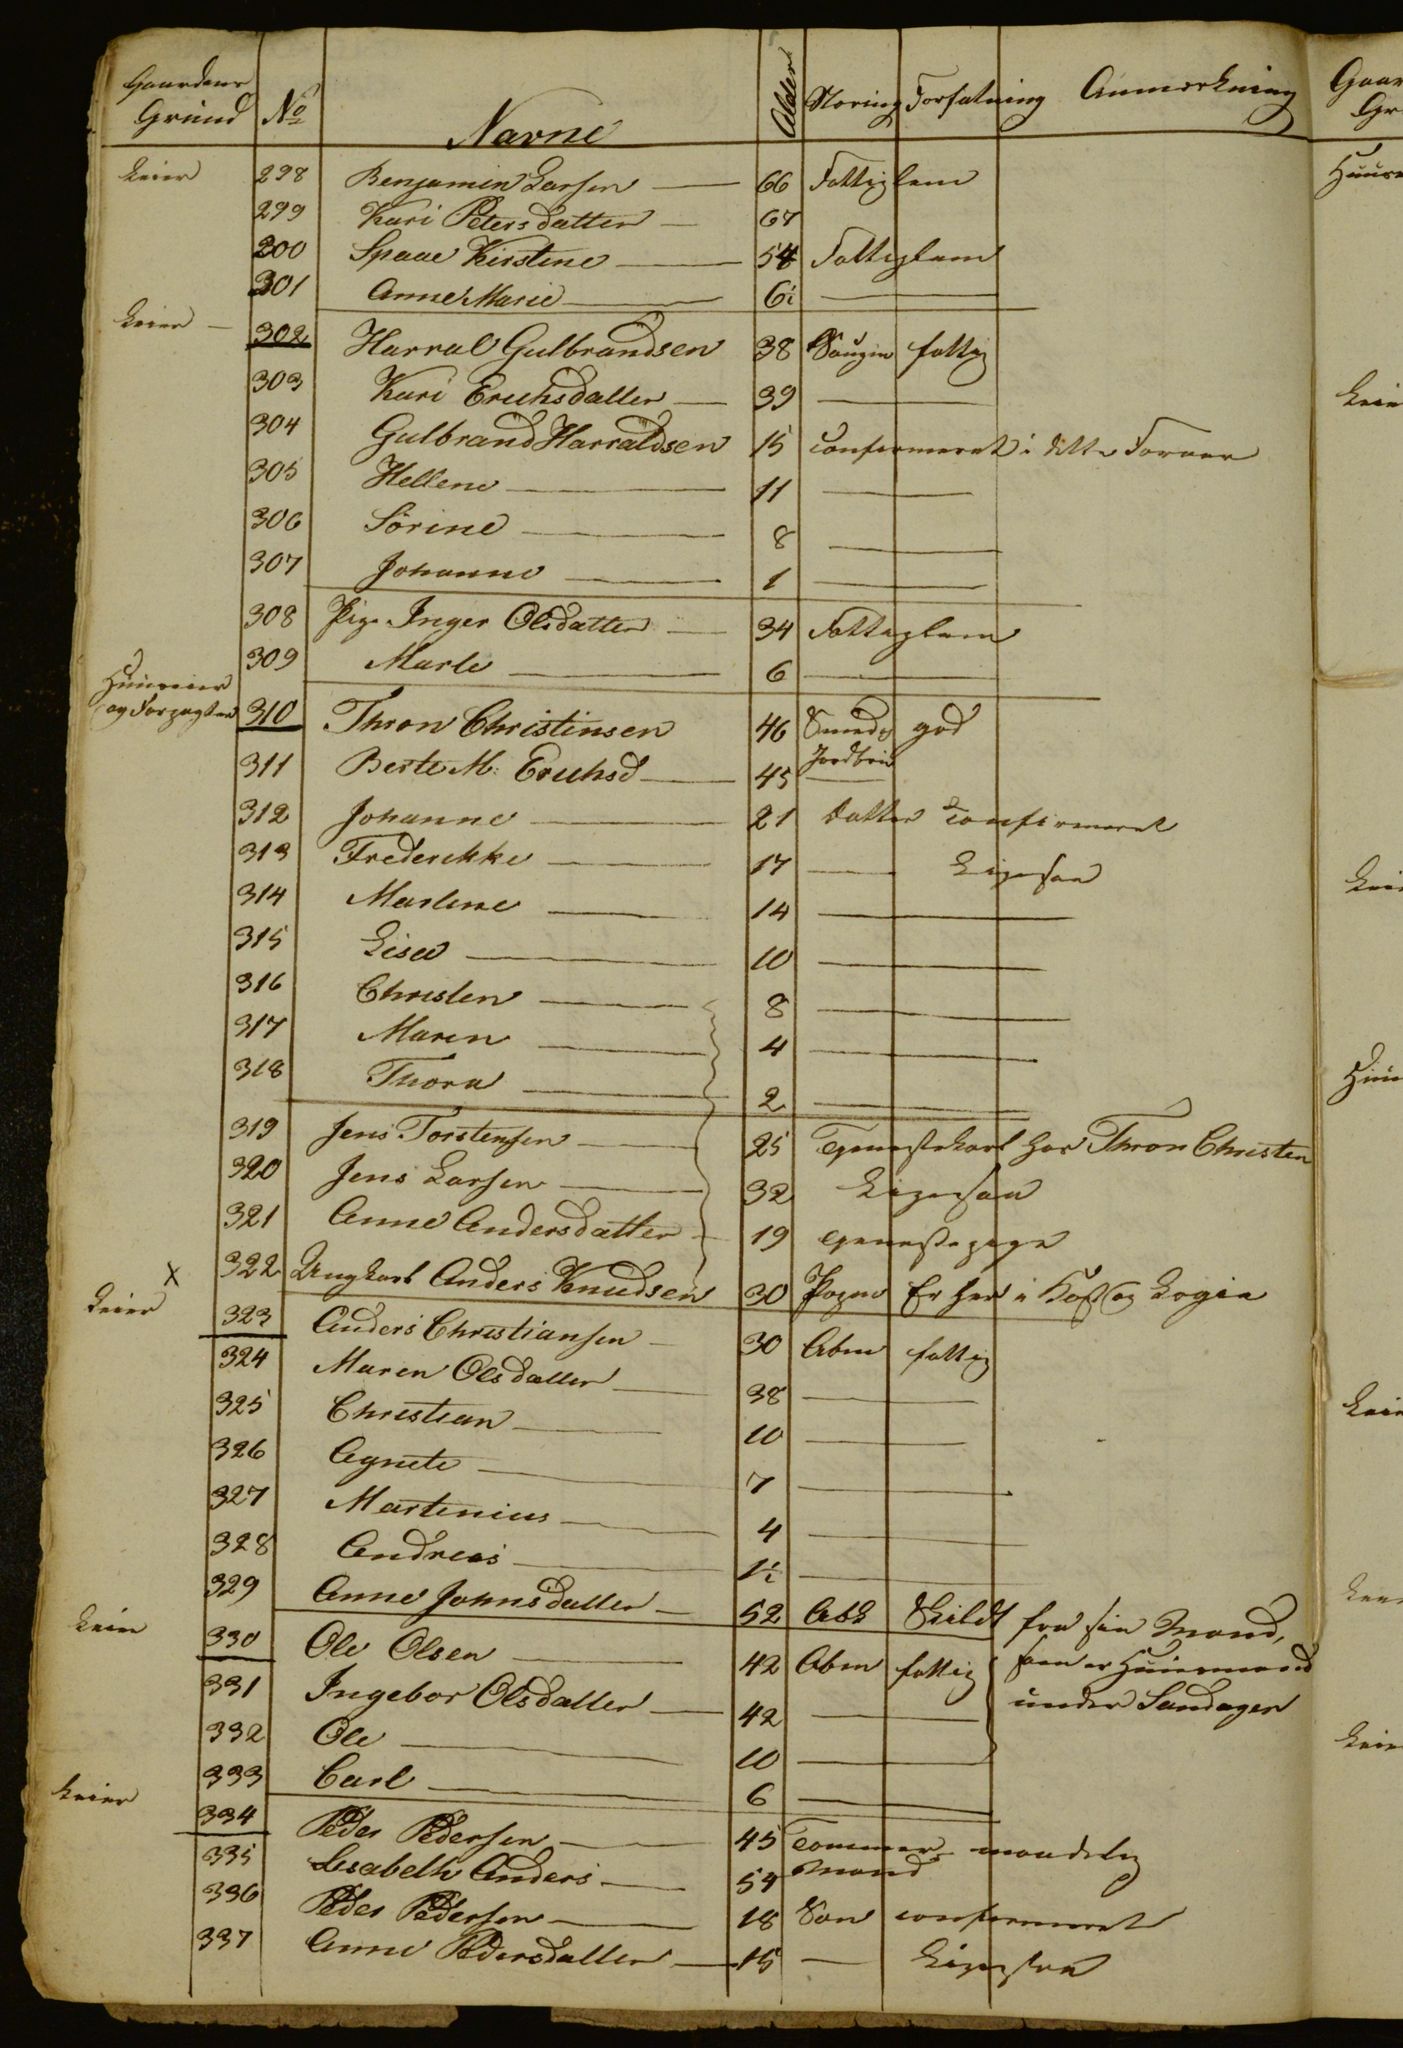 Gaardens Grund No Navne Alder Næring Forfatning Anmerkning
Leier 298 Benjamin Larsen — 66 Fattiglem
299 Kari Petersdatter — 67
200 Spaae Kirstine — 54 Fattiglem
301 Anne Marie — 6½ —
Leier — 302 Harral Gulbrandsen 38 Saugm fattig
303 Kari Erichsdatter — 39 —
304 Gulbrand Harraldsen 15 confirmeret i dette Foraar
305 Hellene — 11 —
306 Sörine — 8 —
307 Johanne — 1 —
308 Pige Inger Olsdatter — 34 Fattiglem
309 Marte — 6 —
Huuseier og Forpagter 310 Thron Christinsen 46 Smed og Jordbru god
311 Berte M: Erichsd — 45 —
312 Johanne — 21 datter confirmeret
313 Frederikke — 17 — Ligesaa
314 Marlene — 14 —
315 Lise — 10 —
316 Christen — 8 —
317 Maren — 4 —
318 Thora — 2 —
319 Jens Torstensen — 25 Tjenestekarl hos Thron Christen
320 Jens Larsen — 32 Ligesaa
321 Anne Andersdatter — 19 Tjenestepige
X 322 Ungkarl Anders Knudsen 30 Er her i Kost og Logie
Leier 323 Anders Christiansen — 30 Abm fattig
324 Maren Olsdatter — 38 —
325 Christian — 10 —
326 Agnete — 7 —
327 Martinius — 4 —
328 Andreas — 1½ —
329 Anne Johnsdatter — 52 Skildt fra sin Mand,
Leier 330 Ole Olsen — 42 Abm fattig som er Huusmand
331 Ingebor Olsdatter — 42 — under Sandager
332 Ole — 10 —
333 Carl — 6 —
Leier 334 Peder Pedersen — 45 Tommer mand maadelig
335 Lisabeth Anders — 54
336 Peder Pedersen — 18 Søn confirmeret
337 Anne Pedersdatter — 15 — Ligesaa